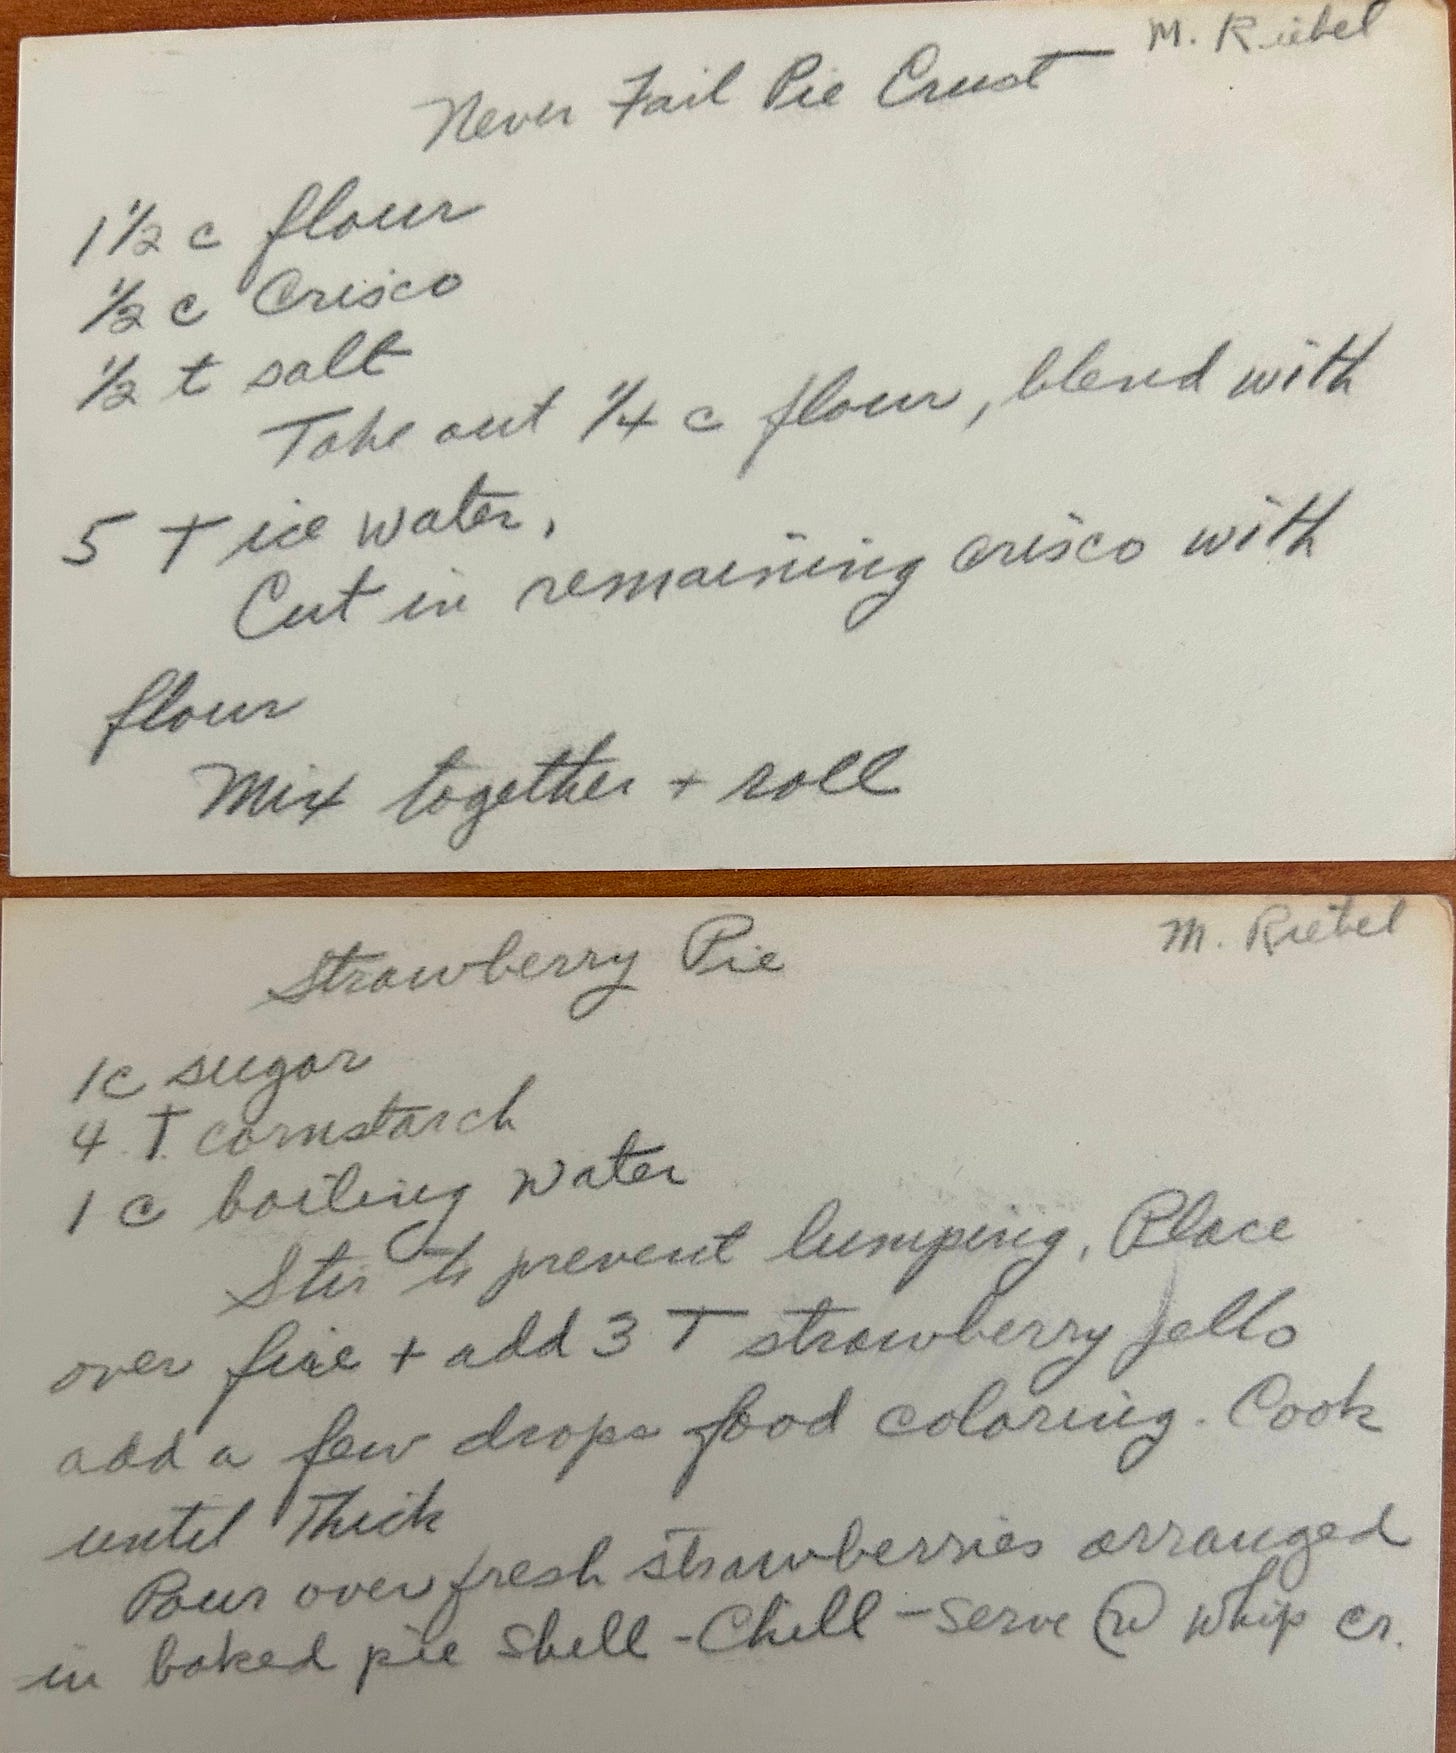 M. Riebel
Never Fail Pie Crust
1 1/2 c flour
1/2 c Crisco
1/2 t salt
Take out 1/4 c flour, blend with
5 T ice water.
Cut in remaining crisco with
flour
Mix together + roll
Strawberry Pie M. Riebel
1c sugar
4 T. cornstarch
1 c boiling water
Stir to prevent lumping. Place
over fire + add 3 T strawberry jello
add a few drops food coloring. Cook
until thick
Pour over fresh strawberries arranged
in baked pie shell - Chill - serve w whip cr.